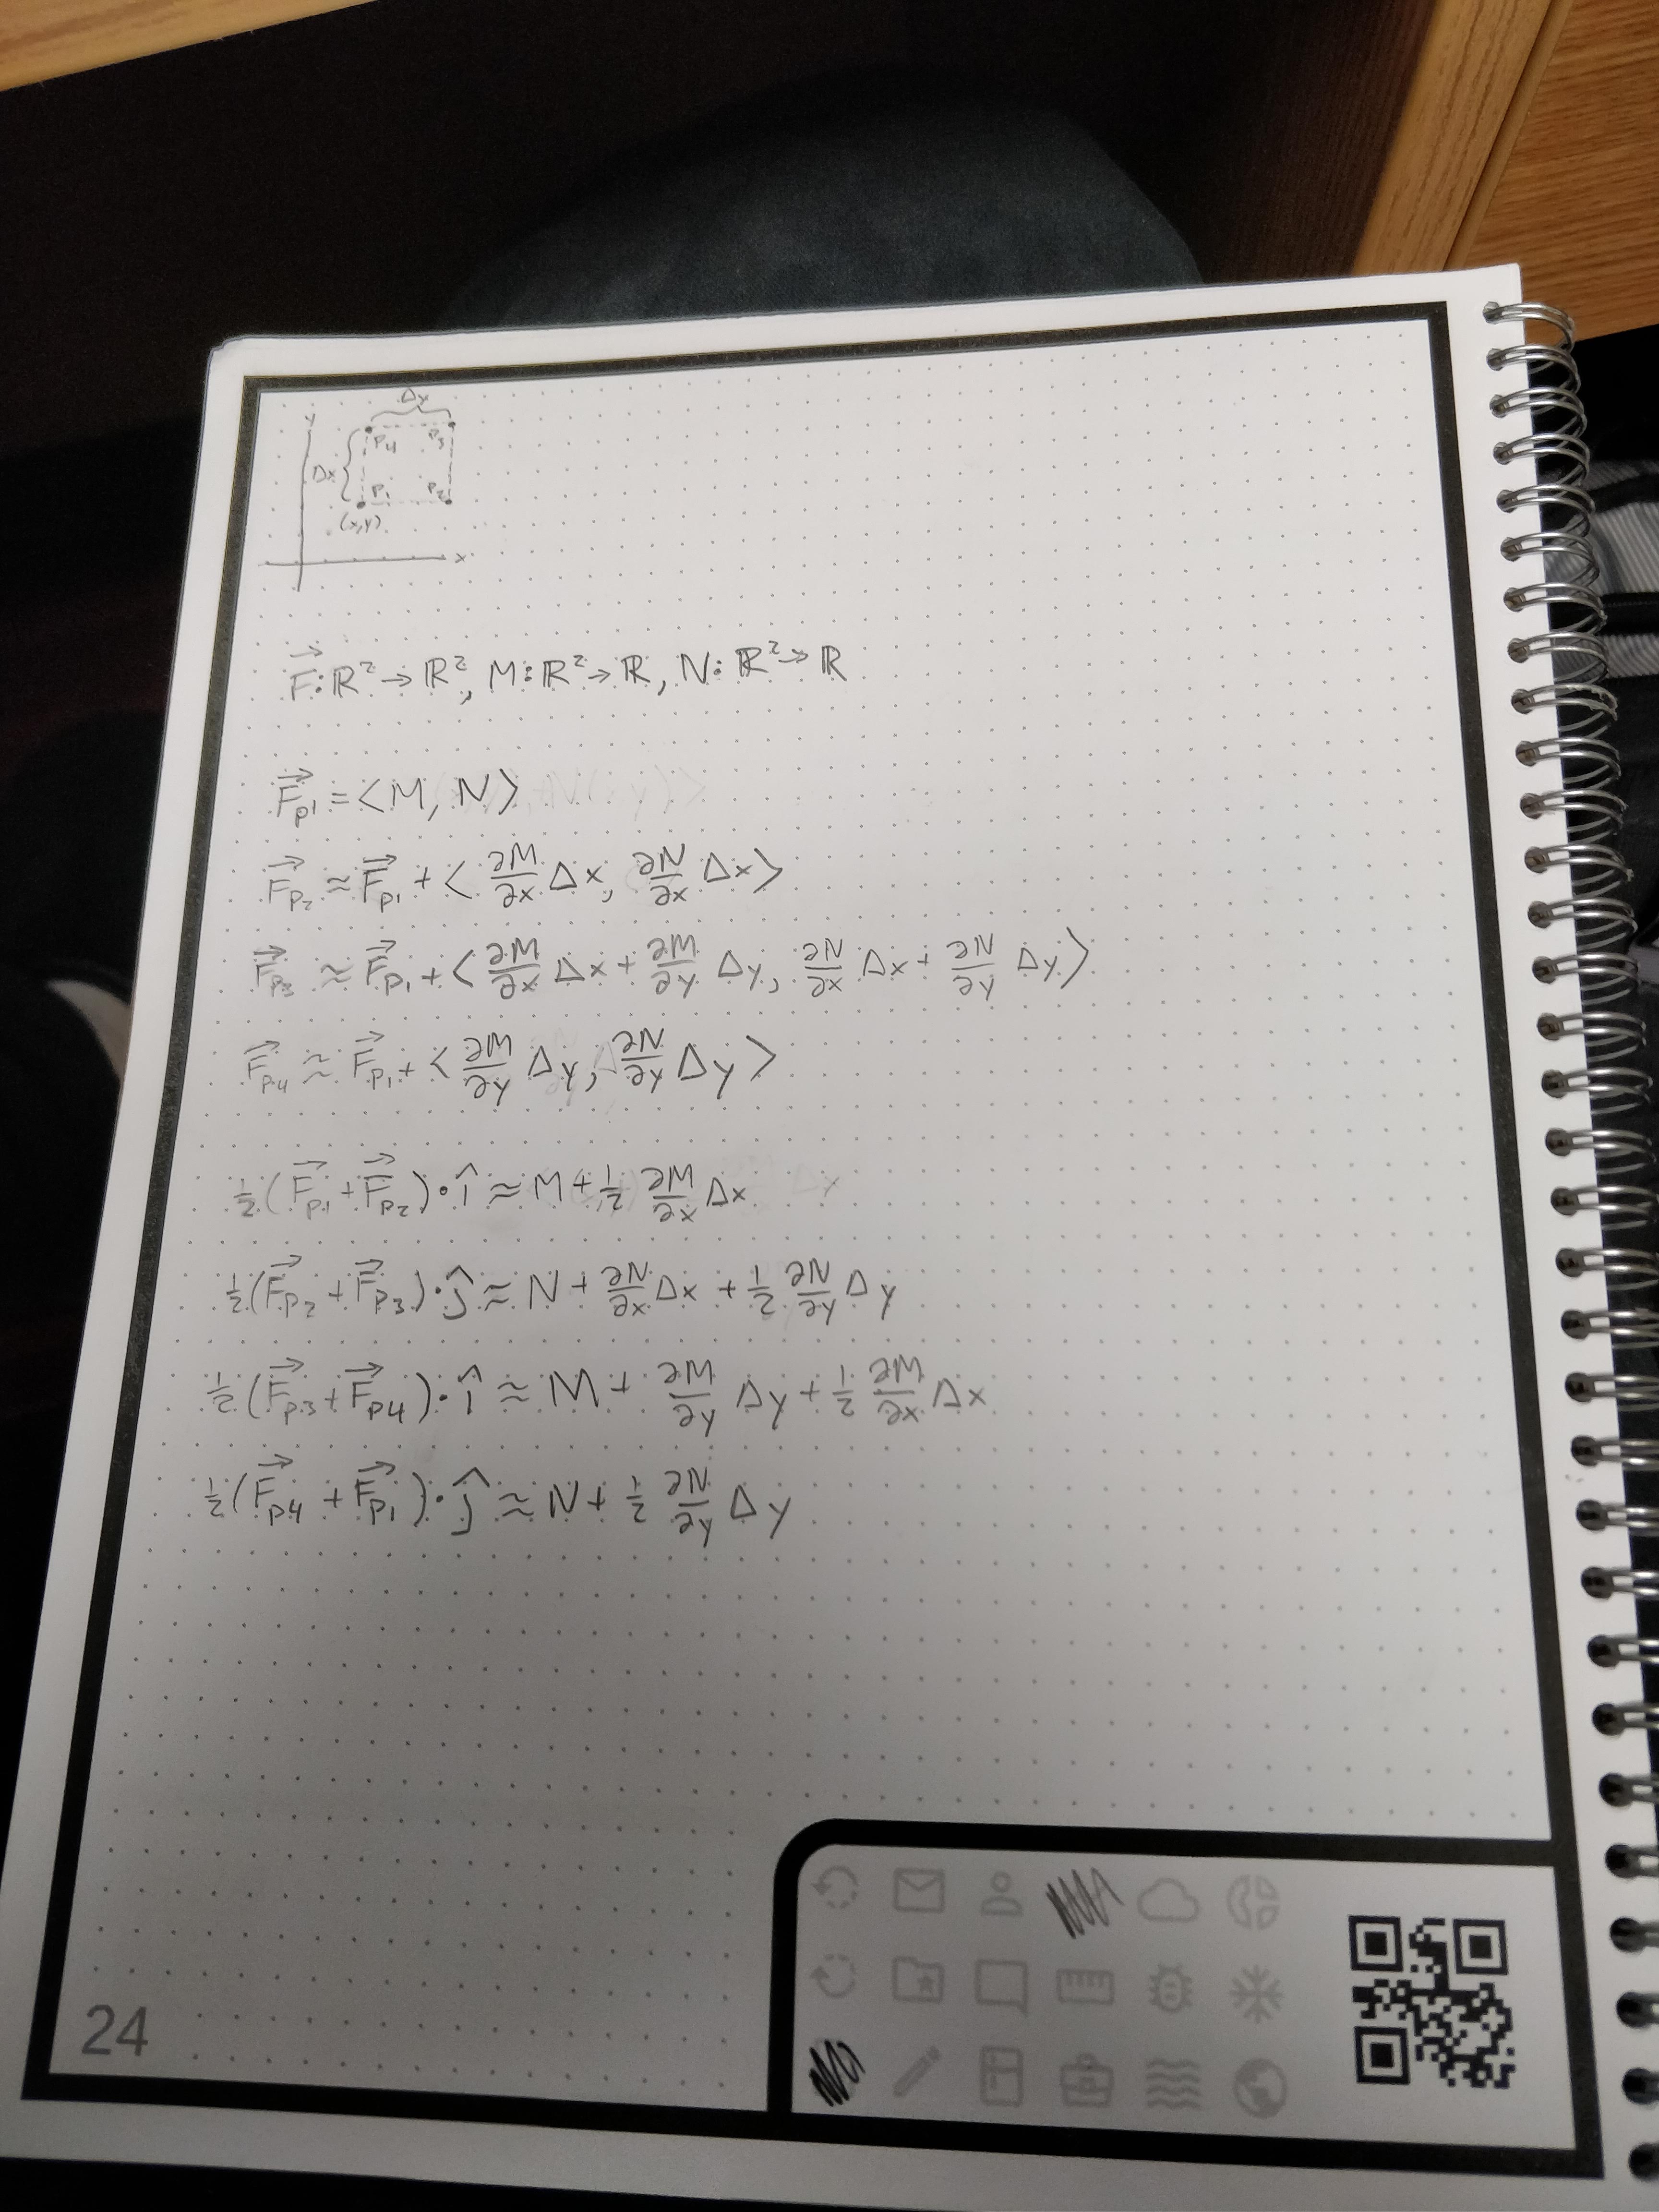 y
Δy
p₄ p₃
Δx
p₁ p₂
(x,y)
x
F⃗: ℝ² → ℝ², M: ℝ² → ℝ, N: ℝ² → ℝ
F⃗ₚ₁ = ⟨M, N⟩
F⃗ₚ₂ ≈ F⃗ₚ₁ + ⟨∂M/∂x Δx, ∂N/∂x Δx⟩
F⃗ₚ₃ ≈ F⃗ₚ₁ + ⟨∂M/∂x Δx + ∂M/∂y Δy, ∂N/∂x Δx + ∂N/∂y Δy⟩
F⃗ₚ₄ ≈ F⃗ₚ₁ + ⟨∂M/∂y Δy, ∂N/∂y Δy⟩
½(F⃗ₚ₁ + F⃗ₚ₂)·î ≈ M + ½ ∂M/∂x Δx
½(F⃗ₚ₂ + F⃗ₚ₃)·ĵ ≈ N + ∂N/∂x Δx + ½ ∂N/∂y Δy
½(F⃗ₚ₃ + F⃗ₚ₄)·î ≈ M + ∂M/∂y Δy + ½ ∂M/∂x Δx
½(F⃗ₚ₄ + F⃗ₚ₁)·ĵ ≈ N + ½ ∂N/∂y Δy
24